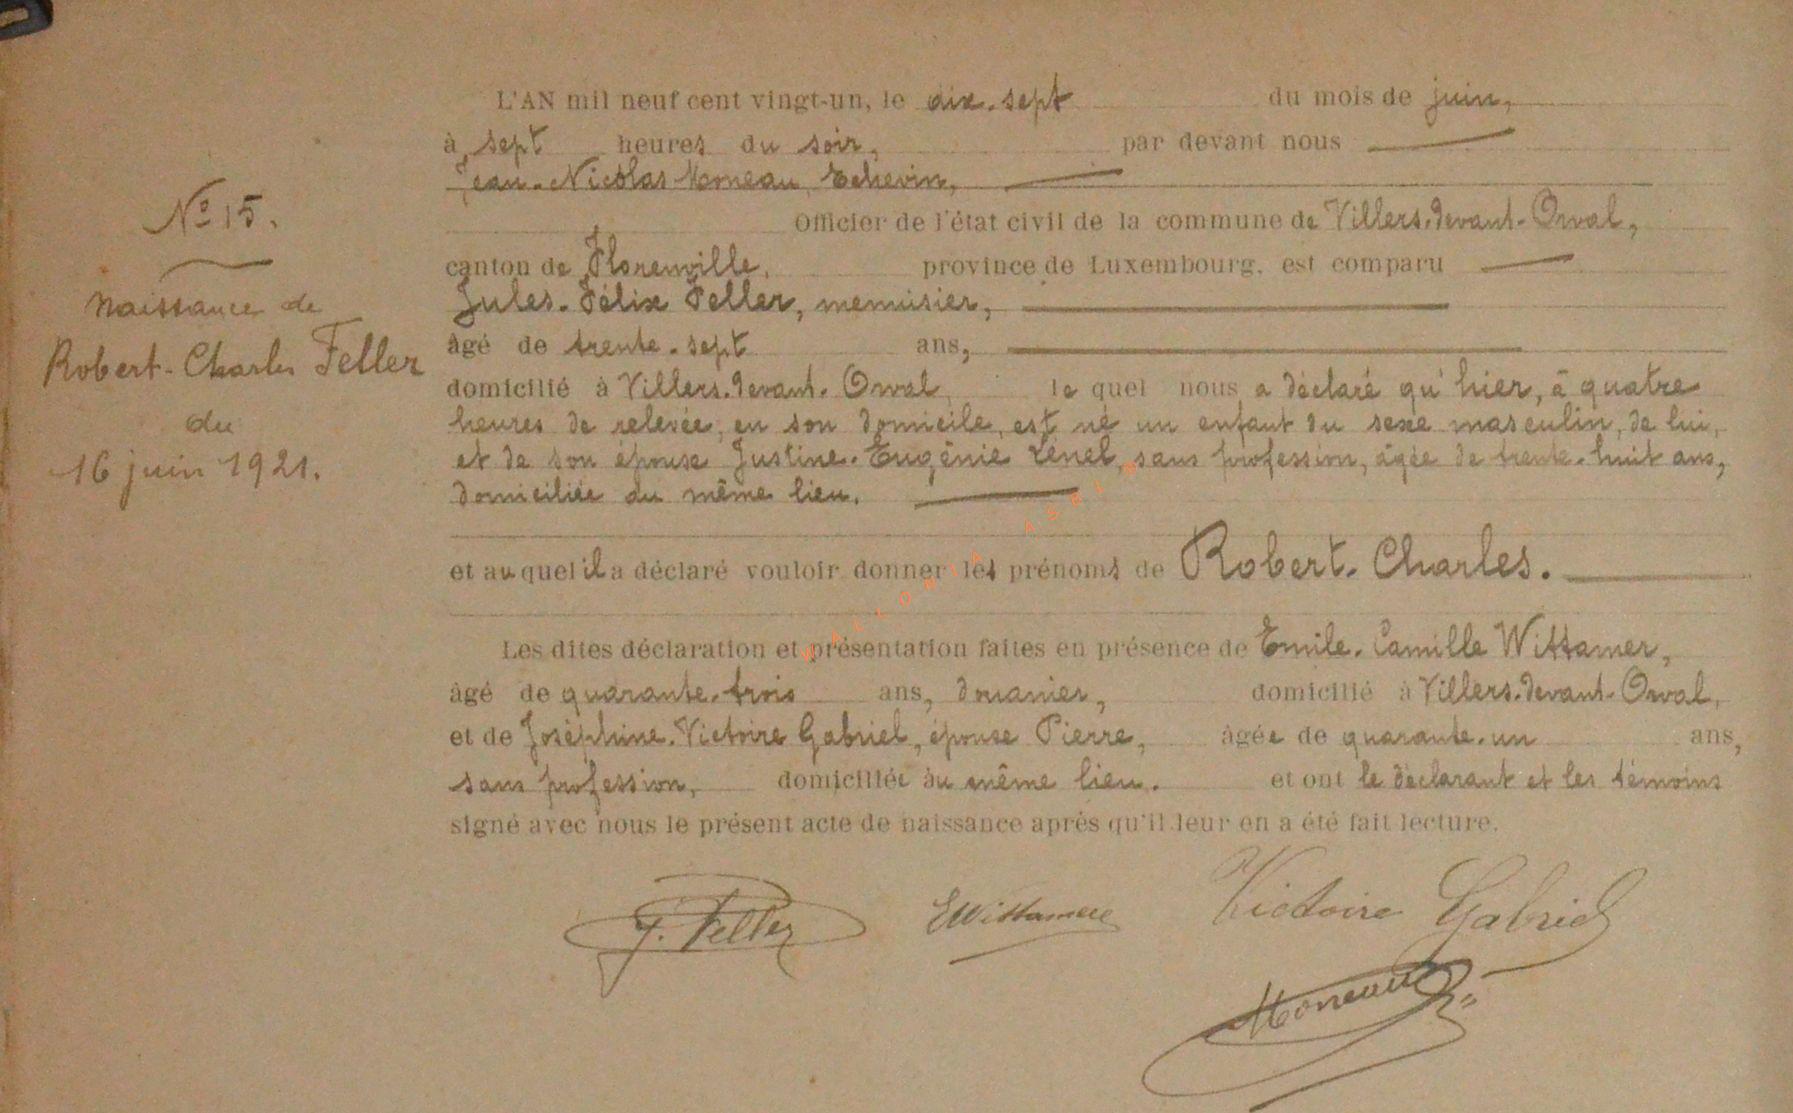 N° 15.
Naissance de
Robert-Charles Feller
du
16 juin 1921.
L'AN mil neuf cent vingt-un, le dix-sept du mois de juin,
à sept heures du soir, par devant nous
Jean-Nicolas Moneau, Echevin,
Officier de l'état civil de la commune de Villers-devant-Orval,
canton de Florenville, province de Luxembourg, est comparu
Jules-Félix Feller, menuisier,
âgé de trente-sept ans,
domicilié à Villers-devant-Orval, le quel nous a déclaré qu'hier, à quatre
heures de relevée, en son domicile, est né un enfant du sexe masculin, de lui,
et de son épouse Justine-Eugénie Lenel, sans profession, âgée de trente-huit ans,
domiciliée au même lieu.
et auquel il a déclaré vouloir donner les prénoms de Robert-Charles.
Les dites déclaration et présentation faites en présence de Emile-Camille Wittamer,
âgé de quarante-trois ans, douanier, domicilié à Villers-devant-Orval,
et de Joséphine-Victoire Gabriel, épouse Pierre, âgée de quarante-un ans,
sans profession, domiciliée au même lieu. et ont le déclarant et les témoins
signé avec nous le présent acte de naissance après qu'il leur en a été fait lecture.
J. Feller EWittamer Victoire Gabriel
Moneau
WALLONIA ASBL